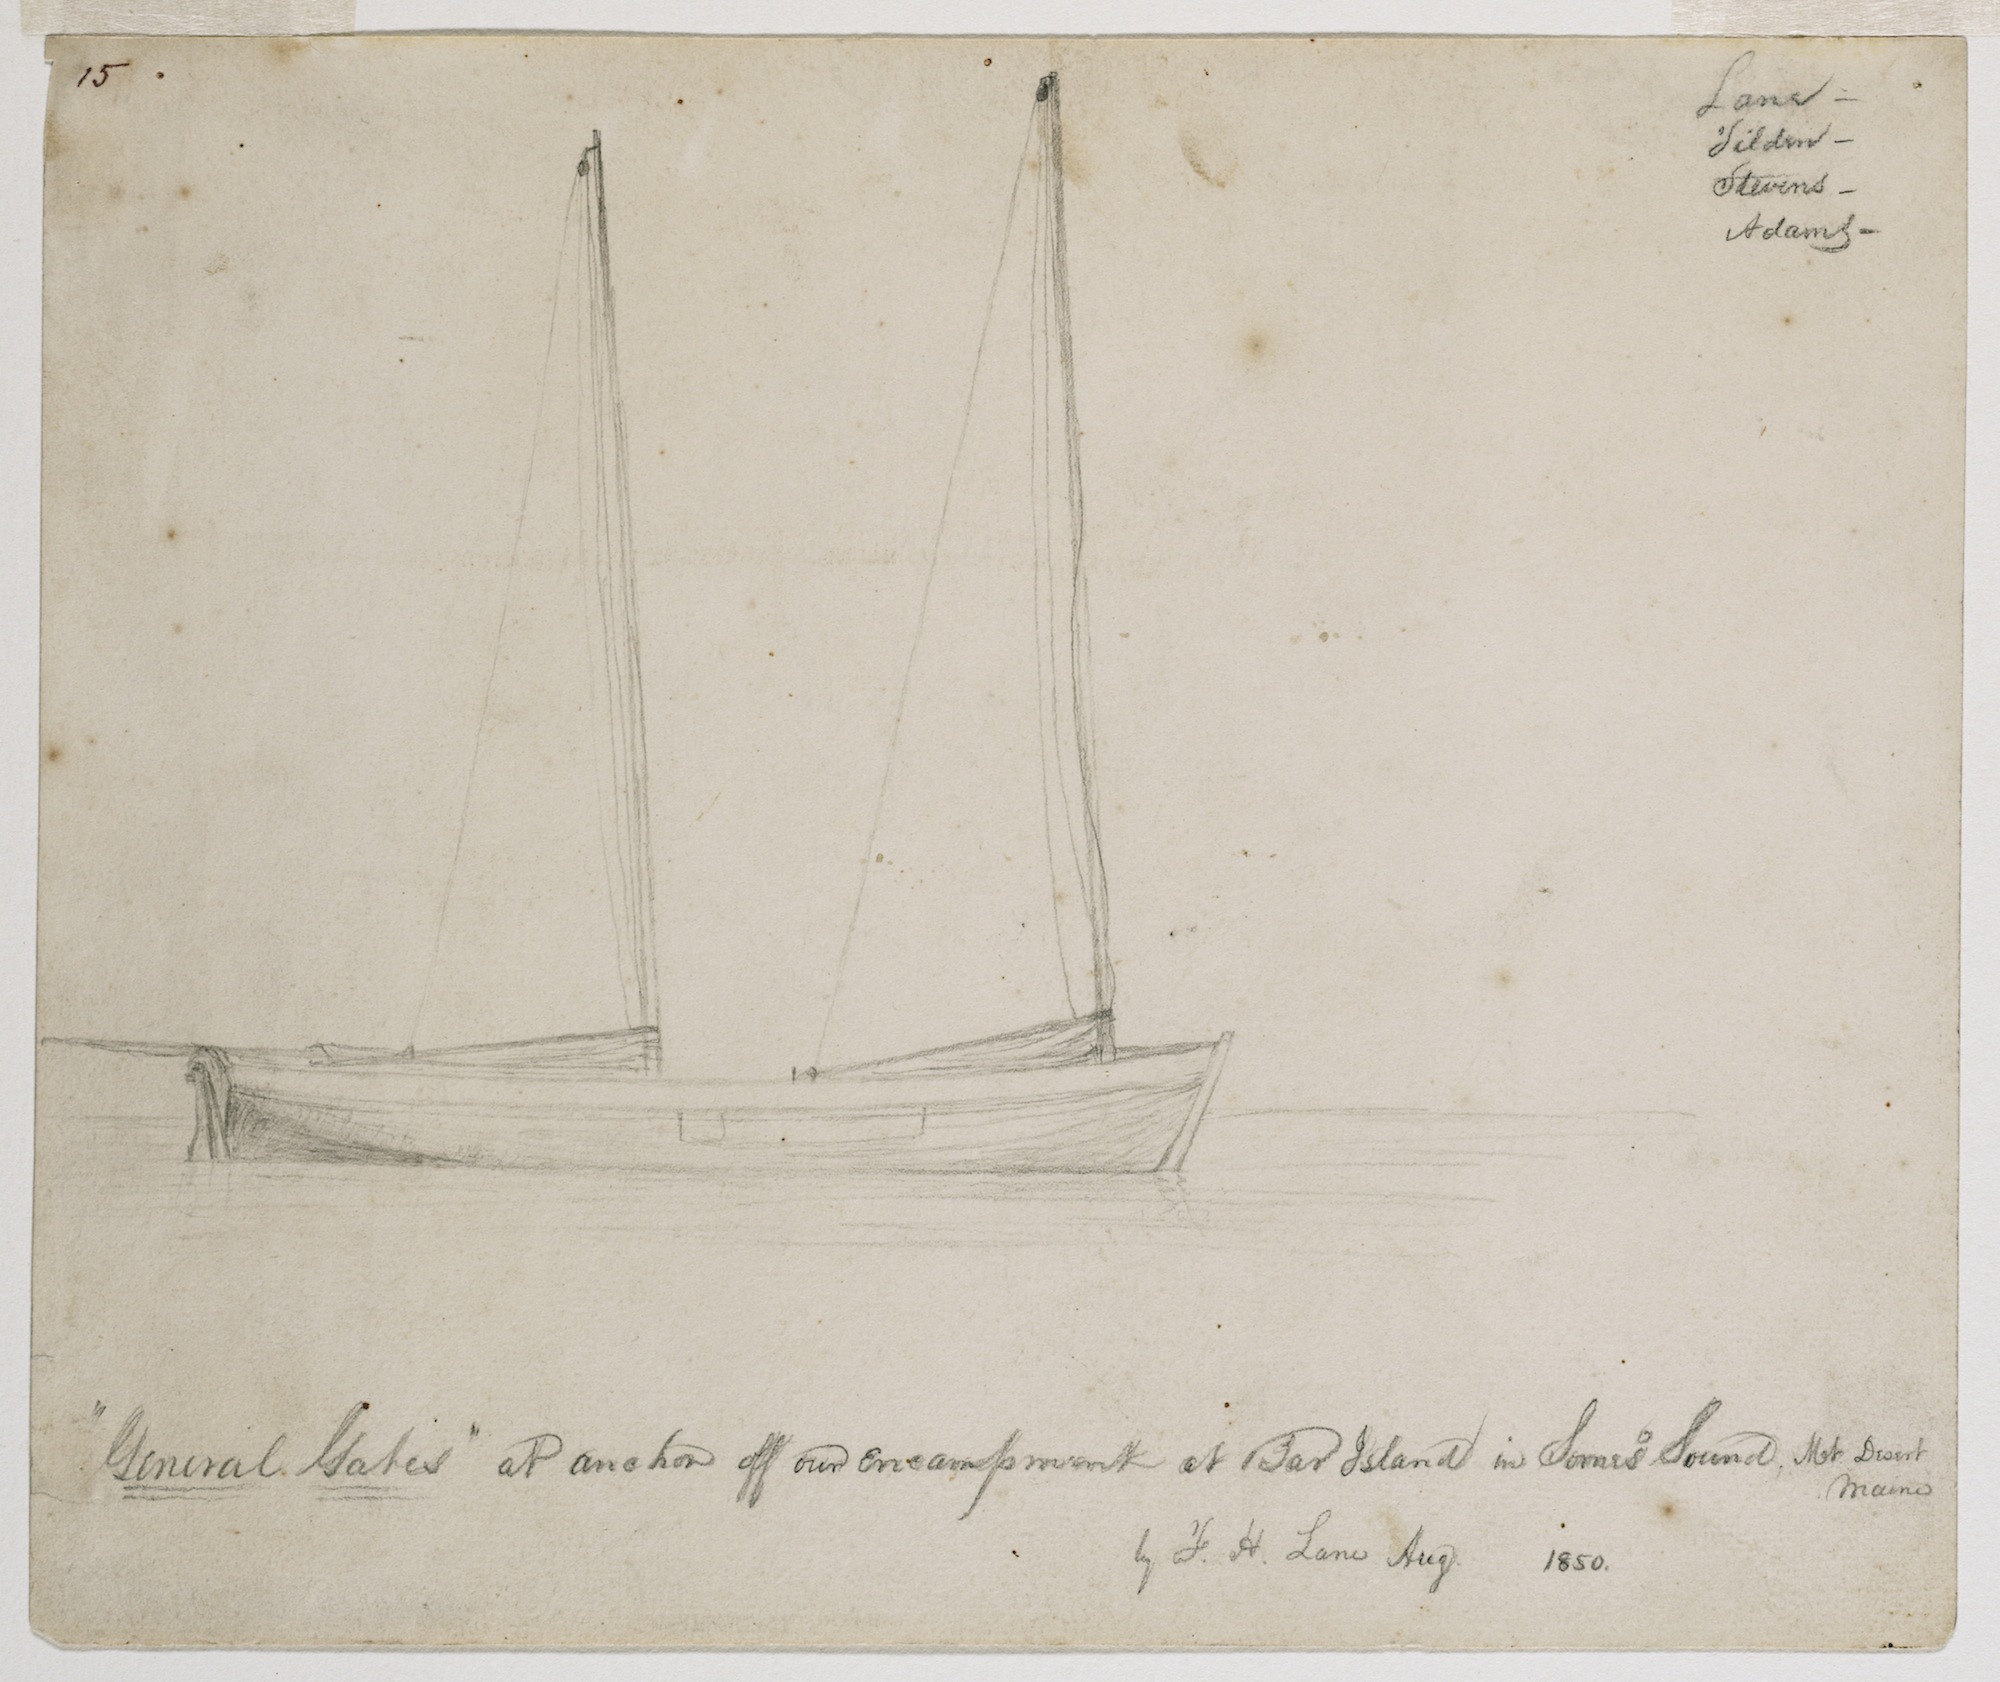 15
Lane -
Tilden -
Stevens -
Adams -
"General Gates" at anchor off our encampment at Bar Island in Somes Sound, Mt. Desert
Maine
by F. H. Lane Aug. 1850.